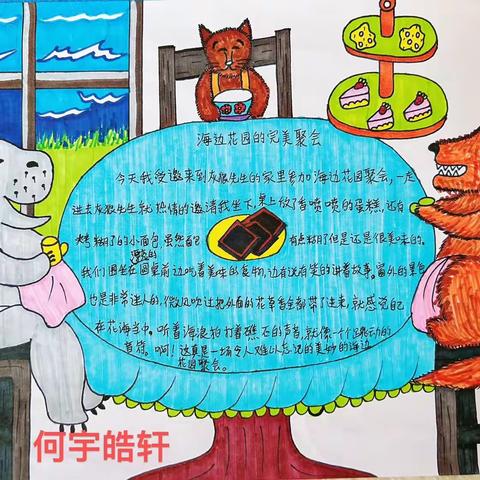 海边花园的完美聚会
今天我受邀来到灰狼先生的家里参加海边花园聚会,一走
进去灰狼先生就热情的邀请我坐下,桌上放了香喷喷的蛋糕,还有
烤糊了的小面包虽然面包 有点糊了但是还是很美味的。
我们围坐在圆桌前边吃着美味的食物,边有说有笑的讲着故事。窗外的景色
也是非常迷人的,微风吹过把外面的花草香全部带了进来,就感觉自己
在花海当中。听着海浪拍打着礁石的声音,就像一个个跳动的
音符。啊!这真是一场令人难以忘记的美妙的海边
花园聚会。
何宇皓轩